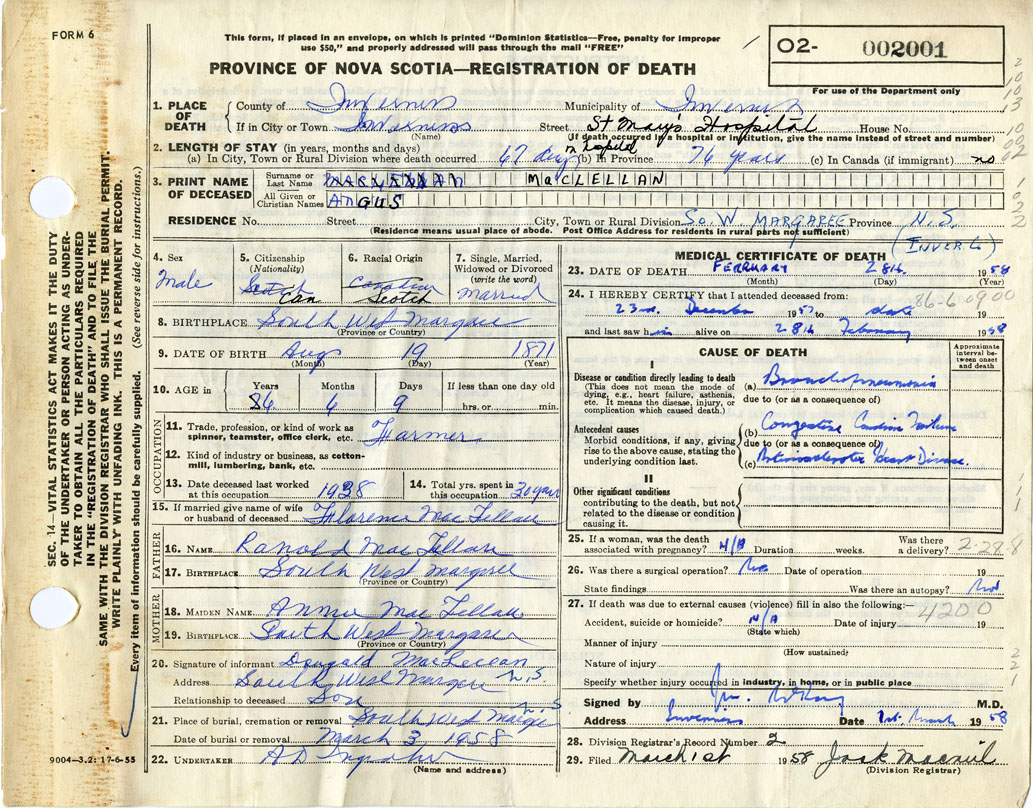 FORM 6
This form, if placed in an envelope, on which is printed "Dominion Statistics—Free, penalty for improper
use $50," and properly addressed will pass through the mail "FREE"
O2- 002001
For use of the Department only
PROVINCE OF NOVA SCOTIA—REGISTRATION OF DEATH
1. PLACE OF DEATH
County of Inverness Municipality of Inverness
If in City or Town Inverness Street St Mary's Hospital House No.
(Name) (If death occurred in a hospital or institution, give the name instead of street and number)
2. LENGTH OF STAY (in years, months and days) in hospital
(a) In City, Town or Rural Division where death occurred 67 days (b) In Province 76 years (c) In Canada (if immigrant) no
3. PRINT NAME OF DECEASED
Surname or Last Name MACLELLAN
All Given or Christian Names ANGUS
RESIDENCE No. Street City, Town or Rural Division So. W. MARGAREE Province N.S.
(Residence means usual place of abode. Post Office Address for residents in rural parts not sufficient)
(INVER. Co)
4. Sex
Male
5. Citizenship
(Nationality)
Scotch
Can
6. Racial Origin
Canadian
Scotch
7. Single, Married, Widowed or Divorced
(write the word)
Married
8. BIRTHPLACE South West Margaree
(Province or Country)
9. DATE OF BIRTH Aug 19 1871
(Month) (Day) (Year)
10. AGE in Years Months Days If less than one day old
86 6 9 hrs. or min.
OCCUPATION
11. Trade, profession, or kind of work as spinner, teamster, office clerk, etc. Farmer
12. Kind of industry or business, as cotton-mill, lumbering, bank, etc.
13. Date deceased last worked at this occupation 1938
14. Total yrs. spent in this occupation 30 years
15. If married give name of wife or husband of deceased Florence MacLellan
FATHER
16. NAME Ranold MacLellan
17. BIRTHPLACE South West Margaree
(Province or Country)
MOTHER
18. MAIDEN NAME Annie MacLellan
19. BIRTHPLACE South West Margaree
(Province or Country)
20. Signature of informant Dougald MacLellan
Address South West Margaree N.S
Relationship to deceased Son
21. Place of burial, cremation or removal South West Margaree N.S
Date of burial or removal March 3 1958
22. UNDERTAKER AD
(Name and address)
MEDICAL CERTIFICATE OF DEATH
23. DATE OF DEATH FEBRUARY 28th 1958
(Month) (Day) (Year)
24. I HEREBY CERTIFY that I attended deceased from: 86-6 0900
23rd December 1957 to date 19
and last saw him alive on 28th February 1958
CAUSE OF DEATH
Approximate interval between onset and death
I
Disease or condition directly leading to death
(This does not mean the mode of dying, e.g., heart failure, asthenia, etc. It means the disease, injury, or complication which caused death.)
(a) Bronchopneumonia
due to (or as a consequence of)
Antecedent causes
Morbid conditions, if any, giving rise to the above cause, stating the underlying condition last.
(b) Congestive Cardiac Failure
due to (or as a consequence of)
(c) Arteriosclerotic Heart Disease.
II
Other significant conditions
contributing to the death, but not related to the disease or condition causing it.
25. If a woman, was the death associated with pregnancy? N/A Duration weeks. Was there a delivery? 2-28-8
26. Was there a surgical operation? No Date of operation 19
State findings Was there an autopsy? No
27. If death was due to external causes (violence) fill in also the following:— 4200
Accident, suicide or homicide? N/A Date of injury 19
(State which)
Manner of injury
(How sustained)
Nature of injury
Specify whether injury occurred in industry, in home, or in public place
Signed by M.D.
Address Inverness Date 1st. March 1958
28. Division Registrar's Record Number 2
29. Filed March 1st 1958 Jack Macneil
(Division Registrar)
SEC. 14—VITAL STATISTICS ACT MAKES IT THE DUTY
OF THE UNDERTAKER OR PERSON ACTING AS UNDER-
TAKER TO OBTAIN ALL THE PARTICULARS REQUIRED
IN THE "REGISTRATION OF DEATH" AND TO FILE THE
SAME WITH THE DIVISION REGISTRAR WHO SHALL ISSUE THE BURIAL PERMIT.
WRITE PLAINLY WITH UNFADING INK. THIS IS A PERMANENT RECORD.
Every item of information should be carefully supplied. (See reverse side for instructions.)
9004—3.2: 17-6-55